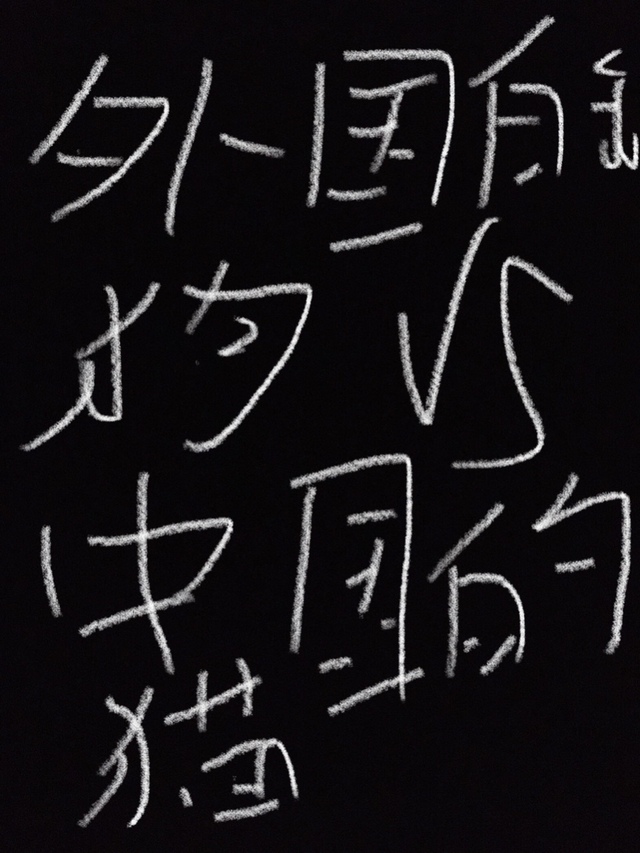 外国的
狗 VS
中国的
猫